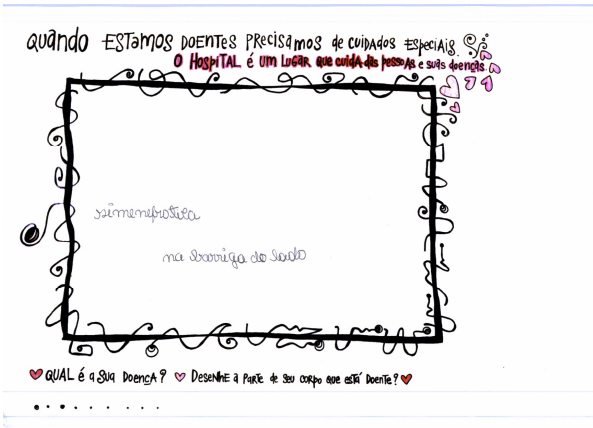 Quando ESTAMOS DOENTES PRECISAMOS de CUIDADOS ESPECIAIS.
O HOSPITAL é UM LUGAR que cuida das pessoas e suas doenças.
na barriga do lado
QUAL é a Sua DOENÇA? DESENHE a PARTE de SEU CORPO QUE ESTÁ DOENTE?